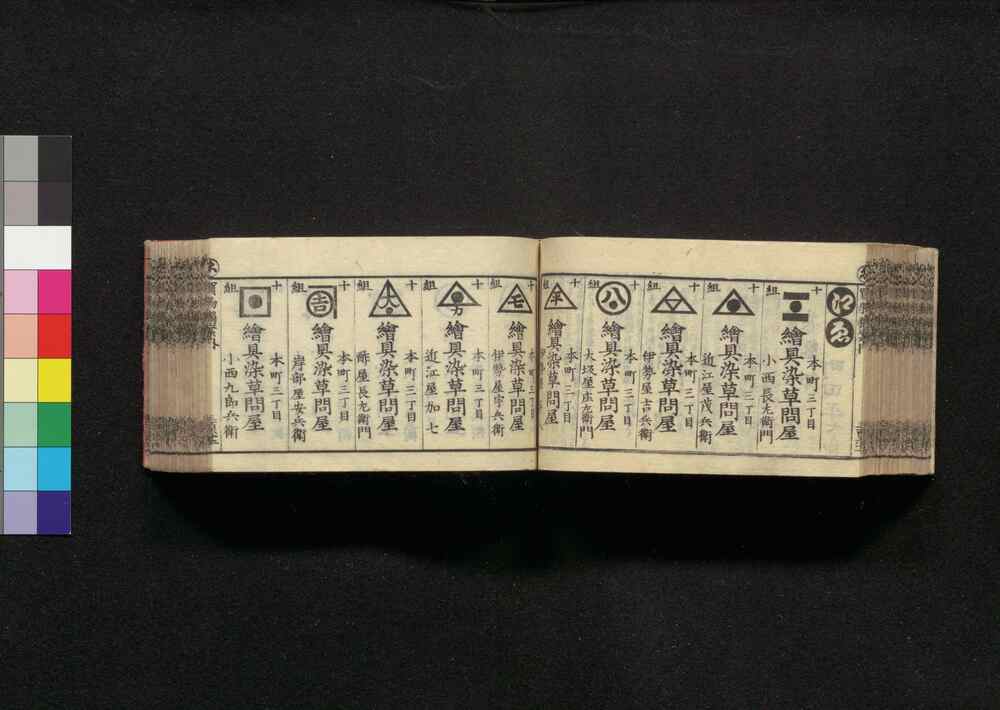 ゑ
十組
繪具染草問屋
本町三丁目
小西長左衛門
十組
繪具染草問屋
本町三丁目
近江屋茂兵衛
十組
繪具染草問屋
本町三丁目
伊勢屋吉兵衛
八
十組
繪具染草問屋
本町三丁目
大坂屋庄左衛門
十組
繪具染草問屋
本町三丁目
十組
繪具染草問屋
本町三丁目
伊勢屋宇兵衛
十組
力
繪具染草問屋
本町三丁目
近江屋加七
十組
大
繪具染草問屋
本町三丁目
酢屋長左衛門
十組
吉
繪具染草問屋
本町三丁目
岸部屋安兵衛
十組
繪具染草問屋
本町三丁目
小西九郎兵衛